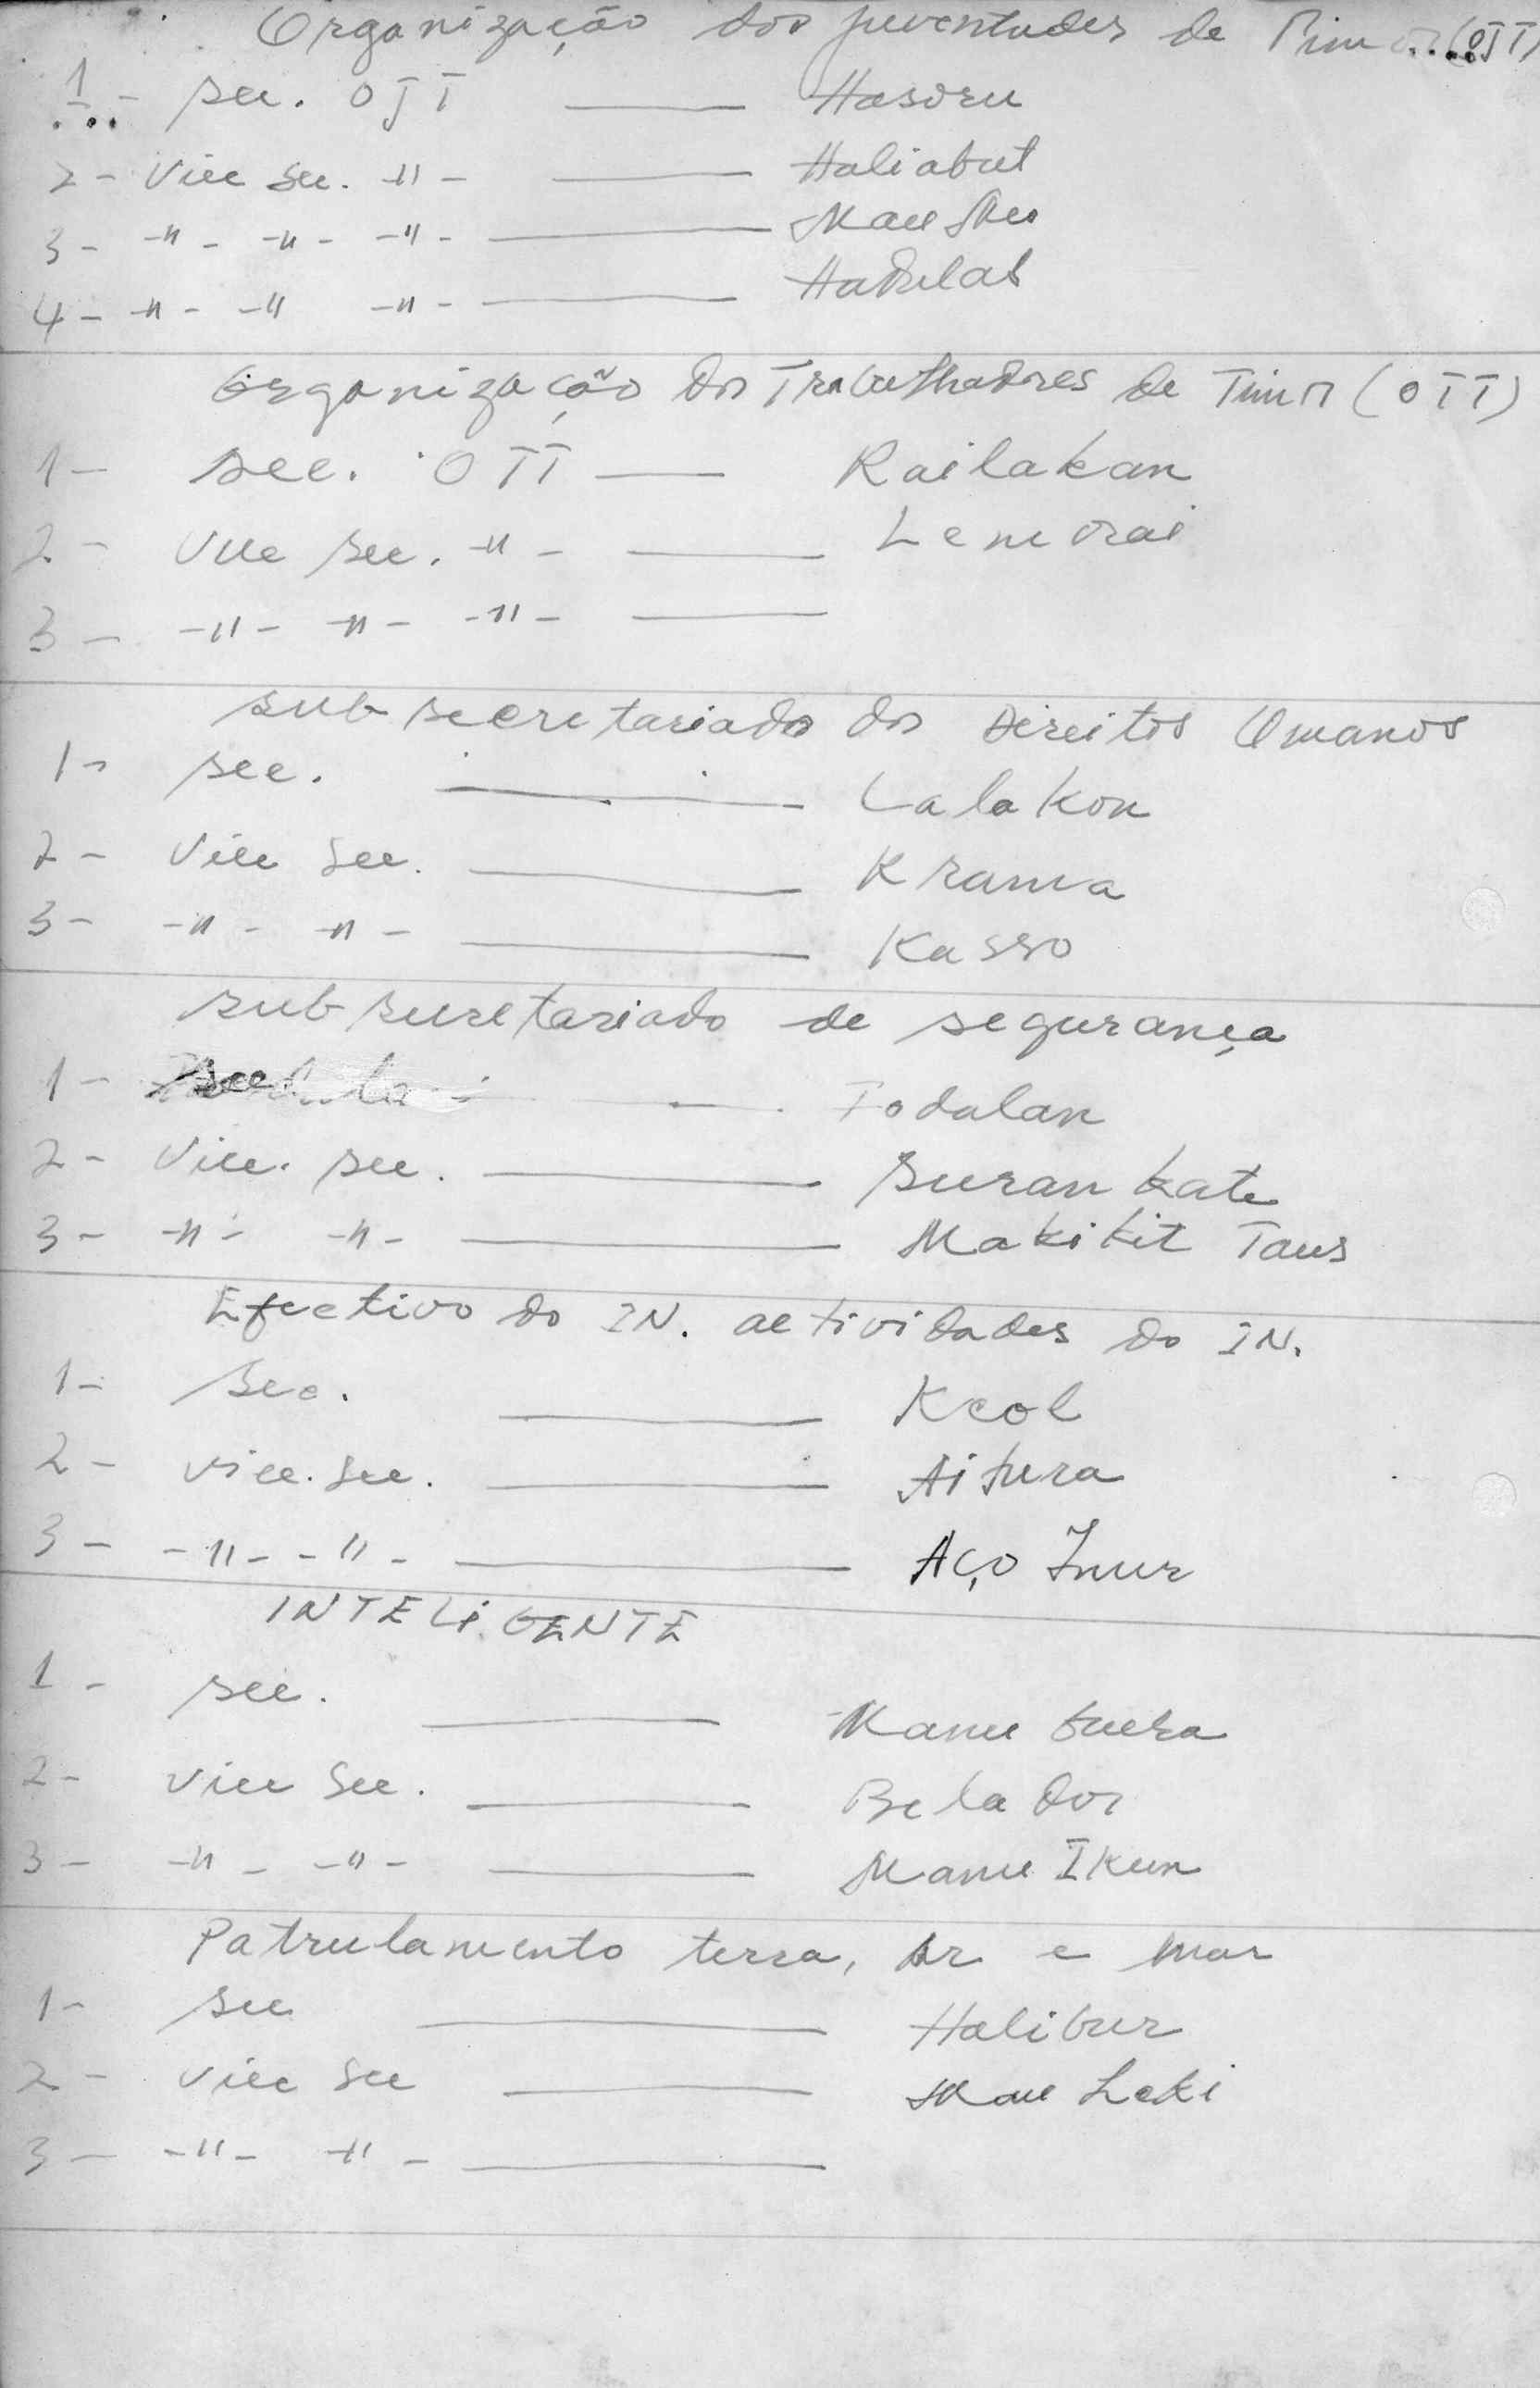 Organização dos juventudes de Timor (OJT)
1 - sec. OJT — Hasoru
2 - Vice sec. -"- — Haliabut
3 - -"- -"- -"- — Mau
4 - -"- -" -"- —
Organização dos Trabalhadores de Timor (OTT)
1 - sec. OTT — Railakan
2 - Vice sec. -"- — Lemorai
3 - -"- -"- -"- —
sub secretariado dos Direitos Omanos
1 - sec. — Lalakon
2 - Vice sec. — Krama
3 - -"- -"- — Kasso
sub secretariado de segurança
1 - sec. — Todalan
2 - Vice. sec. — Suran kate
3 - -"- -"- — Makikit Taus
Efectivo do IN. actividades do IN.
1 - sec. — Keol
2 - vice. sec. — Aitura
3 - -"- -"- — Aço Inur
INTELIGENTE
1 - sec. — Manu fuera
2 - Vice sec. — Belador
3 - -"- -"- — Manu Ikun
Patrulamento terra, Ar e mar
1 - sec — Halibur
2 - Vice sec — Mau Leki
3 - -"- -"- —